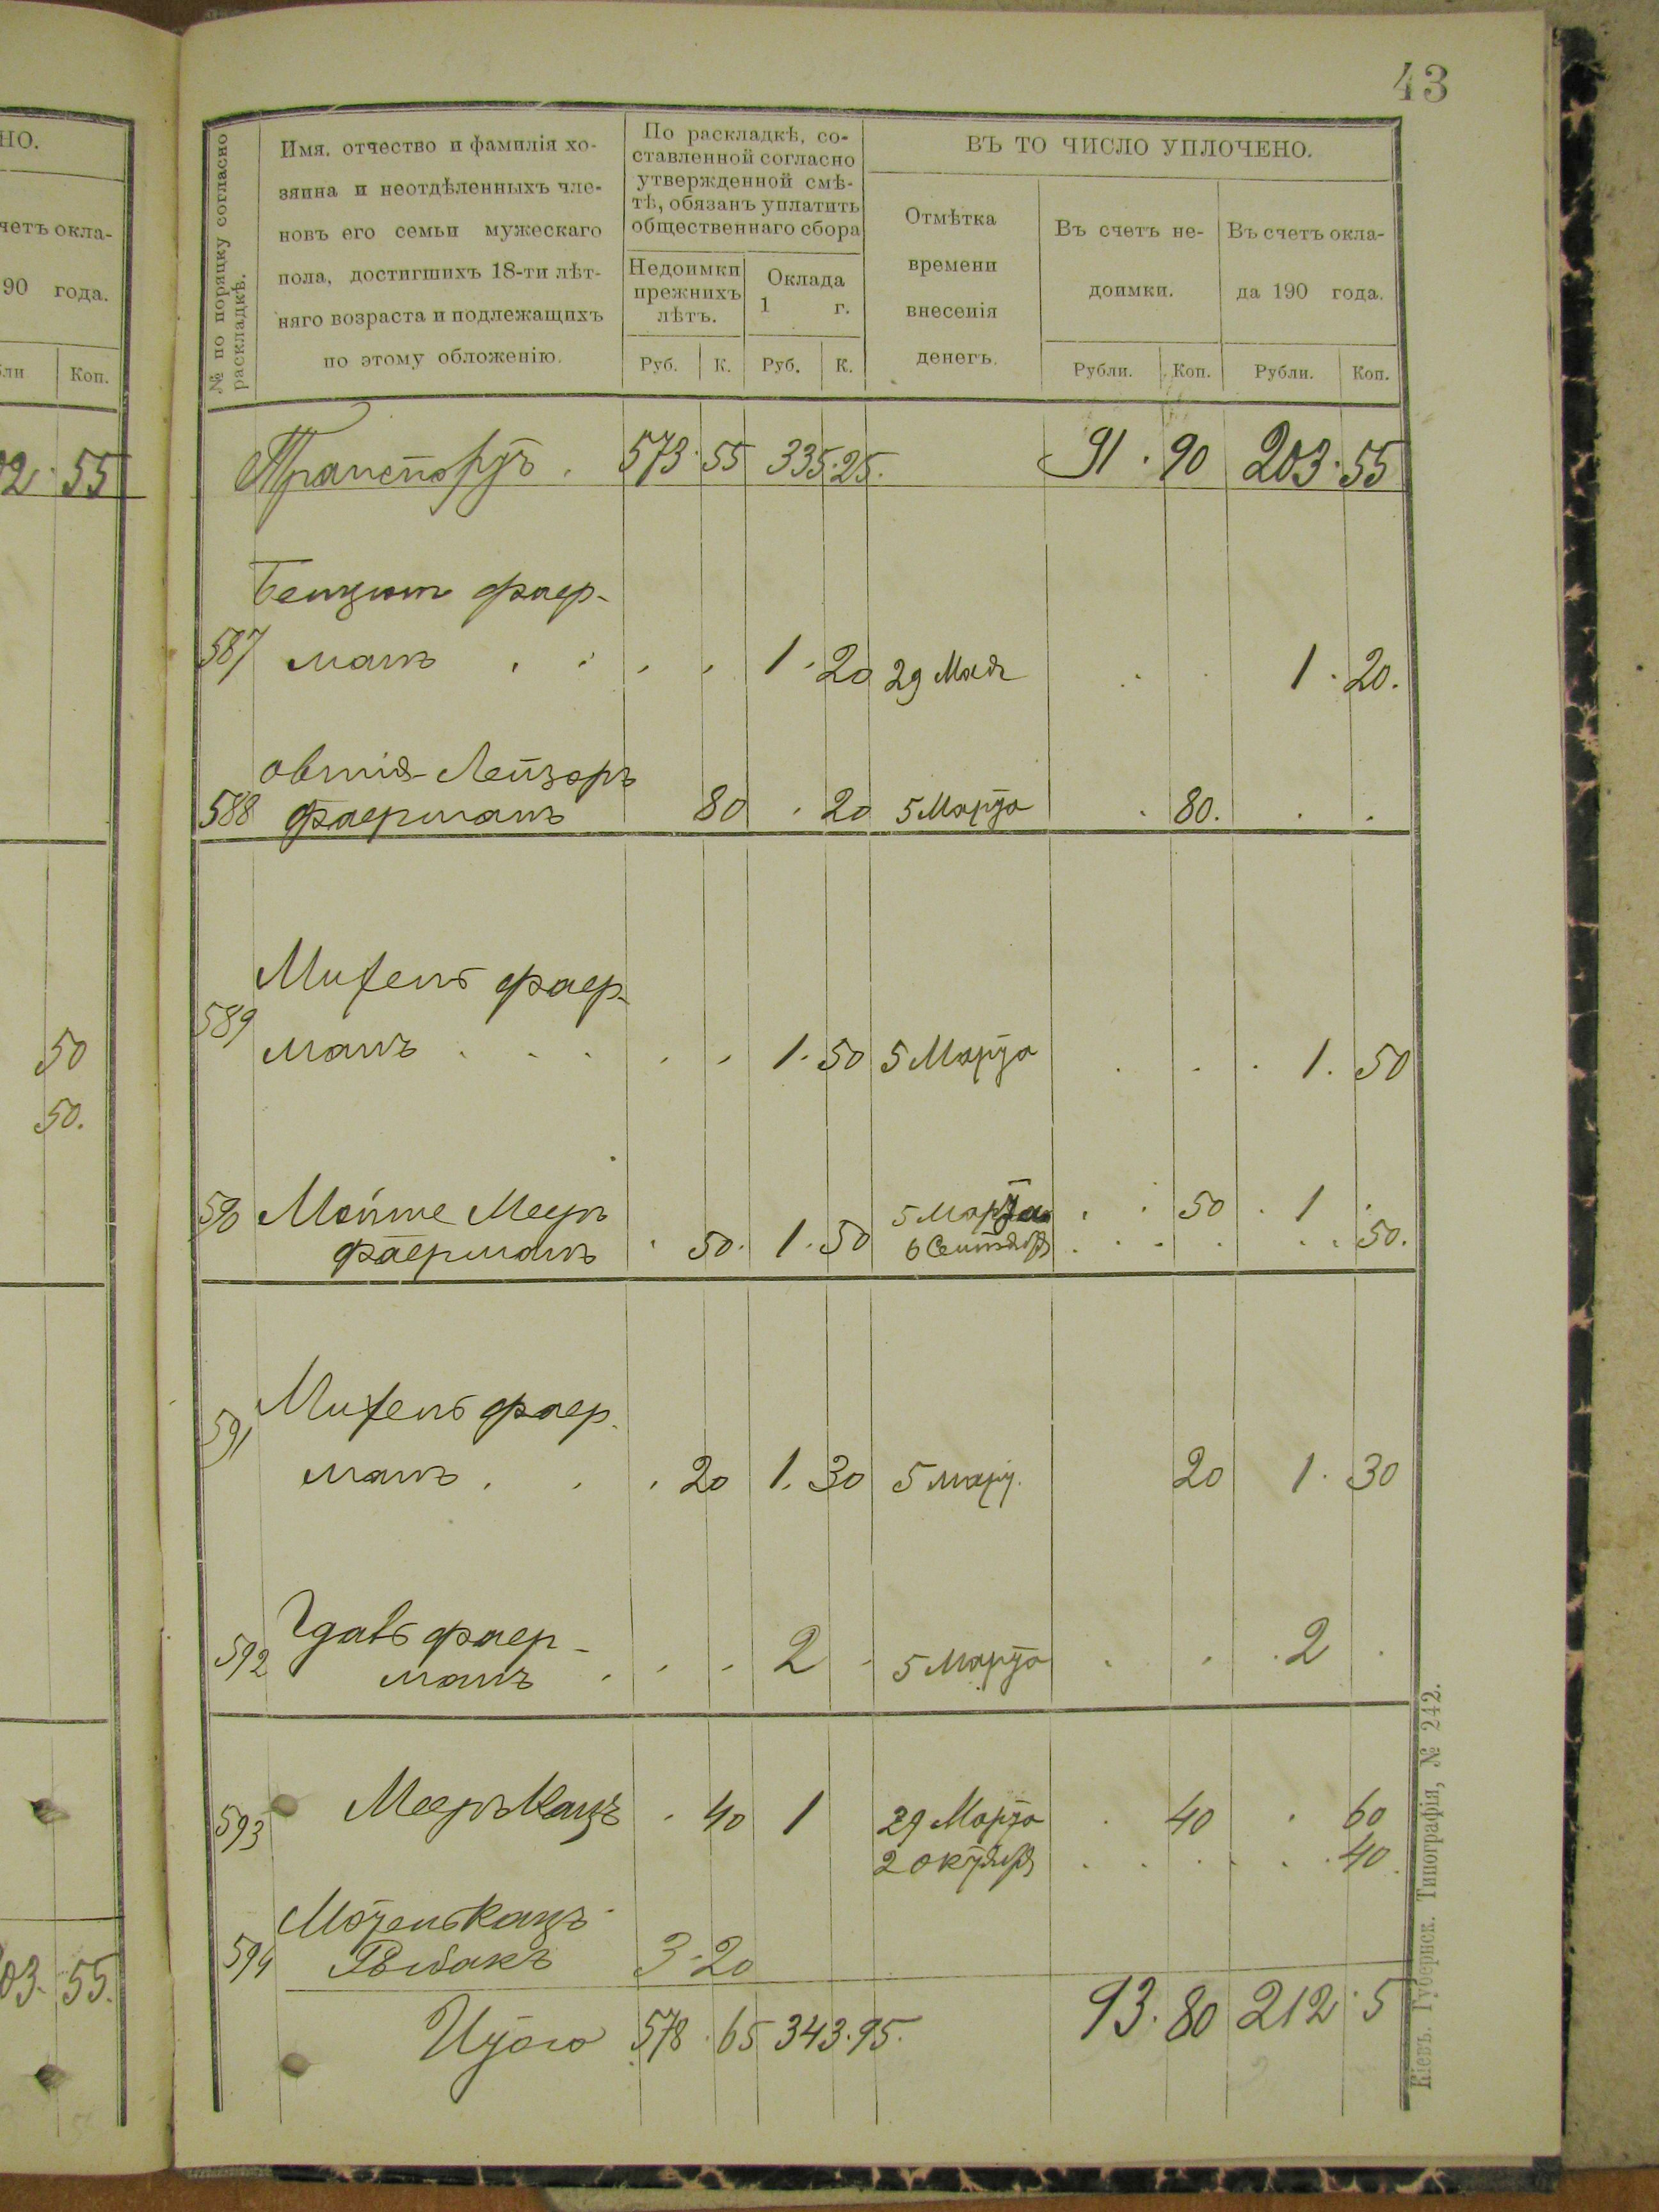 43
НО.
четъ окла-
90 года.
Коп.
02 . 55
50
50.
03. 55.
№ по порядку согласно раскладкѣ.
Имя, отчество и фамилія хо-
зяина и неотдѣленныхъ чле-
новъ его семьи мужескаго
пола, достигшихъ 18-ти лѣт-
няго возраста и подлежащихъ
по этому обложенію.
По раскладкѣ, со-
ставленной согласно
утвержденной смѣ-
тѣ, обязанъ уплатить
общественнаго сбора
Недоимки
прежнихъ
лѣтъ.
Оклада
1 г.
Руб. К. Руб. К.
ВЪ ТО ЧИСЛО УПЛОЧЕНО.
Отмѣтка
времени
внесенія
денегъ.
Въ счетъ не-
доимки.
Въ счетъ окла-
да 190 года.
Рубли. Коп. Рубли. Коп.
Транспортъ . 573 . 55 335 . 25 . 91 . 90 203 . 55
фаер-
587 манъ . . . . 1 . 20 29 Мая . . 1 . 20.
Лейзоръ
588 Фаерманъ 80 . 20 5 Марта . 80. . .
Михель фаер-
589
манъ . . . . . 1 . 50 5 Марта . . . 1 . 50
590 Мойше Мееръ 5 Марта . . 50 . 1 .
фаерманъ . 50. 1 . 50 6 Сентября . . . . . . 50.
Михель фаер-
591
манъ . . . 20 1 . 30 5 март. 20 1 . 30
фаер-
592 манъ . . . 2 . 5 Марта . . . 2 .
593 Мееръ Кацъ . 40 1 29 Марта . 40 . 60
2 октября . . . . . . 40.
Мотель Кацъ
594 Рыбакъ 3 . 20
Итого 578 . 65 343 . 95. 93 . 80 212 . 5
Кіевъ. Губернск. Типографія, № 242.